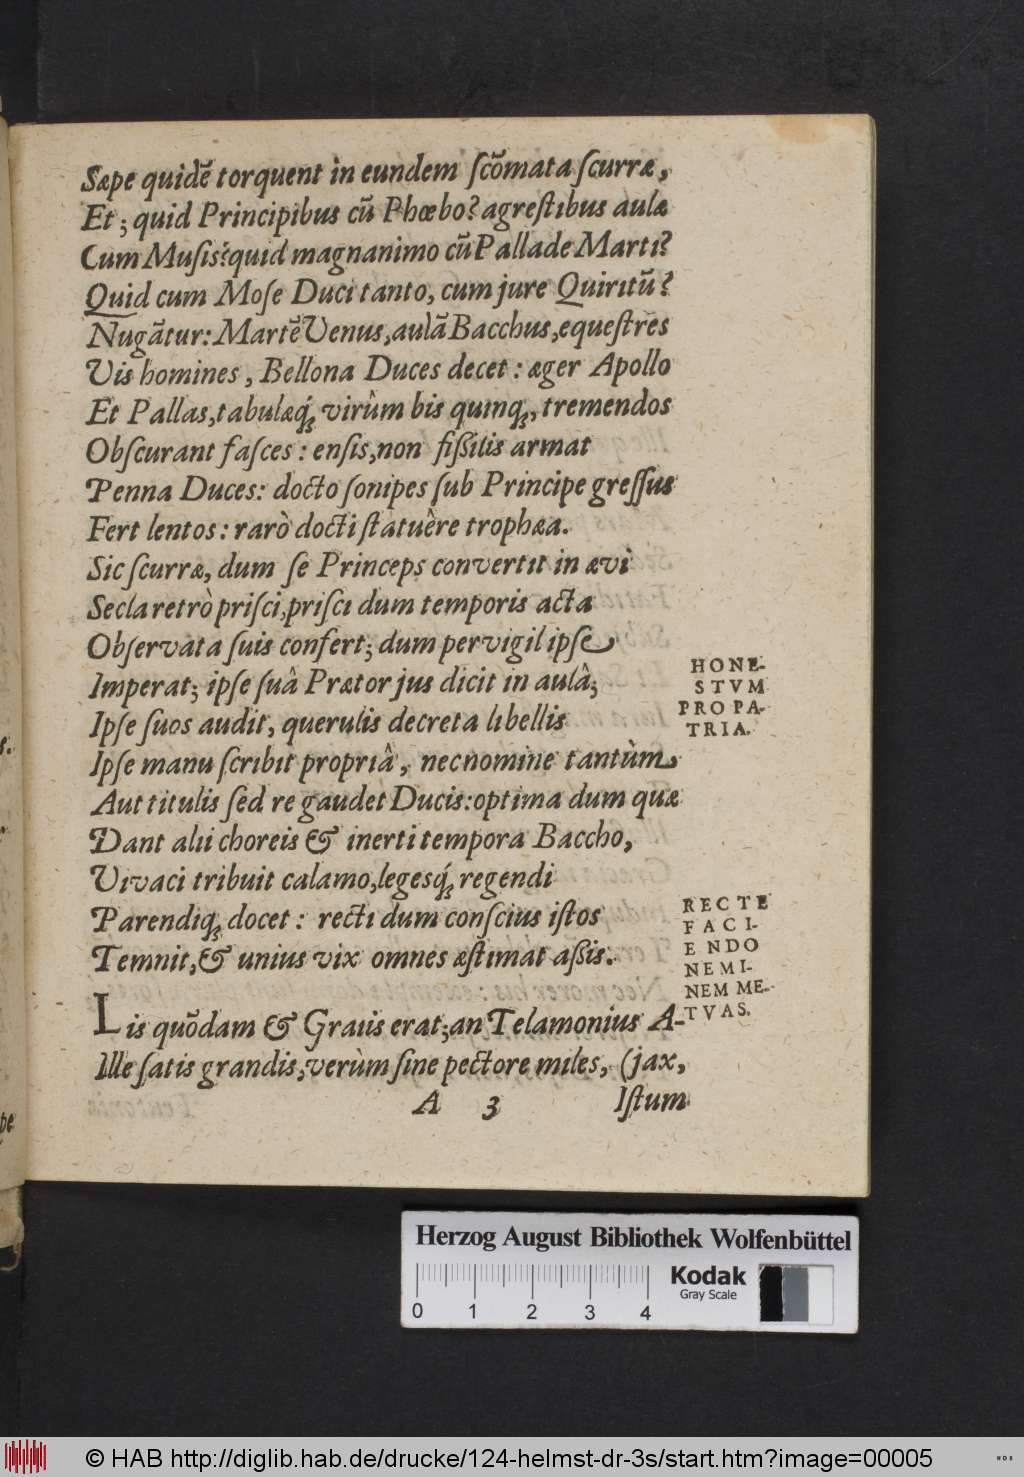 Sæpe quidē torquent in eundem ſcōmata ſcurræ,
Et; quid Principibus cū Phœbo? agreſtibus aulæ
Cum Muſis? quid magnanimo cū Pallade Marti?
Quid cum Moſe Duci tanto, cum jure Quiritū?
Nugātur: Martē Venus, aulā Bacchus, equeſtres
Vis homines, Bellona Duces decet: æger Apollo
Et Pallas, tabulæq́; virùm bis quinq;, tremendos
Obſcurant faſces: enſis, non fißilis armat
Penna Duces: docto ſonipes ſub Principe greſſus
Fert lentos: rarò docti ſtatuêre trophæa.
Sic ſcurræ, dum ſe Princeps convertit in ævi
Secla retrò priſci, priſci dum temporis acta
Obſervata ſuis confert; dum pervigil ipſe
Imperat; ipſe ſuâ Prætor jus dicit in aulâ;
Ipſe ſuos audit, querulis decreta libellis
Ipſe manu ſcribit propriâ, nec nomine tantùm
Aut titulis ſed re gaudet Ducis: optima dum quæ
Dant alii choreis & inerti tempora Baccho,
Vivaci tribuit calamo, legesq́; regendi
Parendiq; docet: recti dum conſcius iſtos
Temnit, & unius vix omnes æſtimat aßis.
HONE-
STVM
PRO PA-
TRIA.
RECTE
FACI-
ENDO
NEMI-
NEM ME-
TVAS.
Lis quōdam & Graiis erat; an Telamonius A-
Ille ſatis grandis, verùm ſine pectore miles, (jax,
A 3
Iſtum
s.
pe
Herzog August Bibliothek Wolfenbüttel
Kodak
Gray Scale
0 1 2 3 4
© HAB http://diglib.hab.de/drucke/124-helmst-dr-3s/start.htm?image=00005